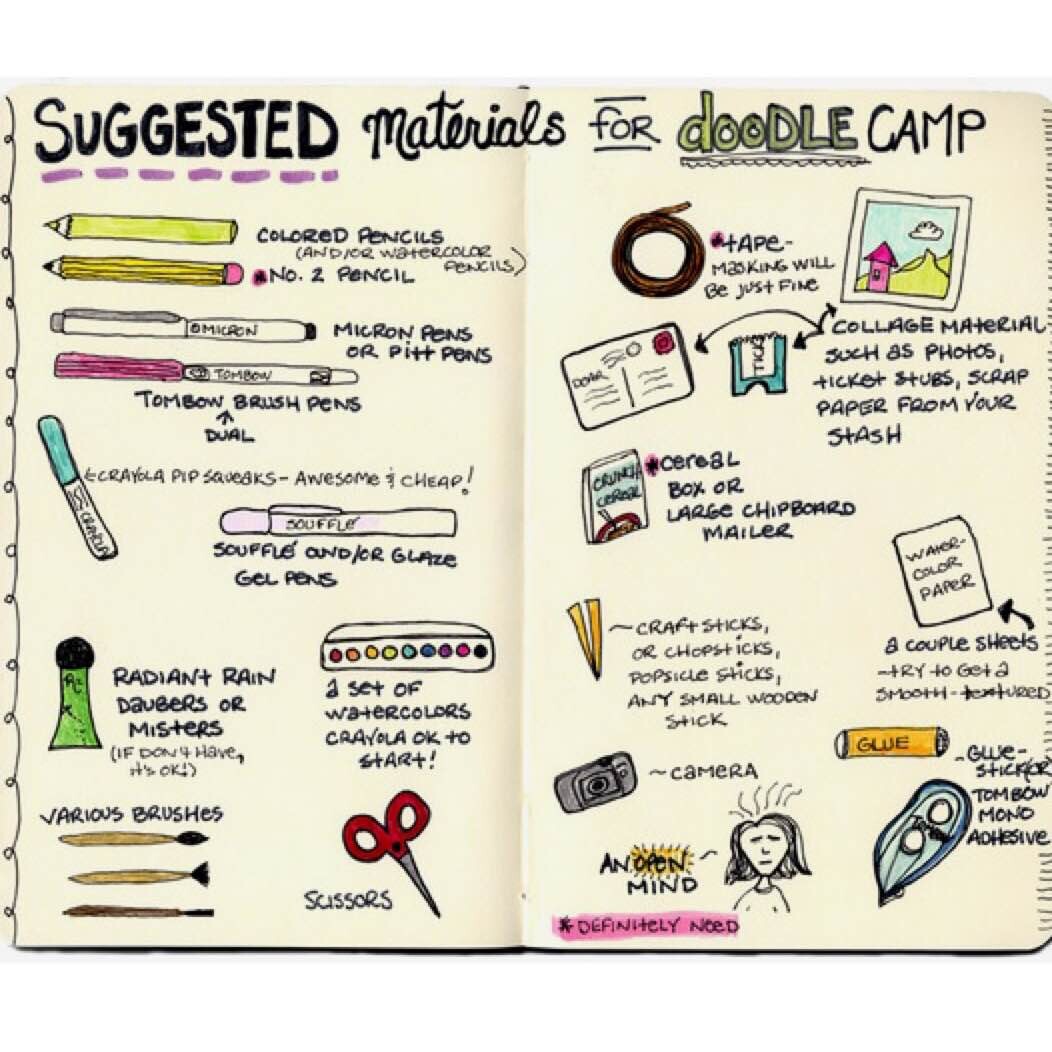 SUGGESTED materials FOR dooDLE CAMP
COLORED PENCILS
(AND/OR WATERCOLOR
PENCILS)
*NO. 2 PENCIL
MICRON
MICRON PENS
OR PITT PENS
TOMBOW
TOMBOW BRUSH PENS
DUAL
CRAYOLA
CRAYOLA PIP SQUEAKS - AWESOME & CHEAP!
SOUFFLÉ
SOUFFLÉ AND/OR GLAZE
GEL PENS
RADIANT RAIN
DAUBERS OR
MISTERS
(IF DON'T HAVE,
it's OK!)
A SET OF
WATERCOLORS
CRAYOLA OK TO
START!
VARIOUS BRUSHES
SCISSORS
*TAPE-
MASKING WILL
BE JUST FINE
DEAR
TICK
COLLAGE MATERIAL
SUCH AS PHOTOS,
TICKET STUBS, SCRAP
PAPER FROM YOUR
STASH
CRUNCH
CEREAL
*cereal
BOX OR
LARGE CHIPBOARD
MAILER
WATER-
COLOR
PAPER
A COUPLE SHEETS
-TRY TO GET A
SMOOTH-TEXTURED
~CRAFT STICKS,
OR CHOPSTICKS,
POPSICLE STICKS,
ANY SMALL WOODEN
STICK
GLUE
-GLUE-
STICK OR
TOMBOW
MONO
ADHESIVE
~CAMERA
AN OPEN
MIND
* DEFINITELY NEED